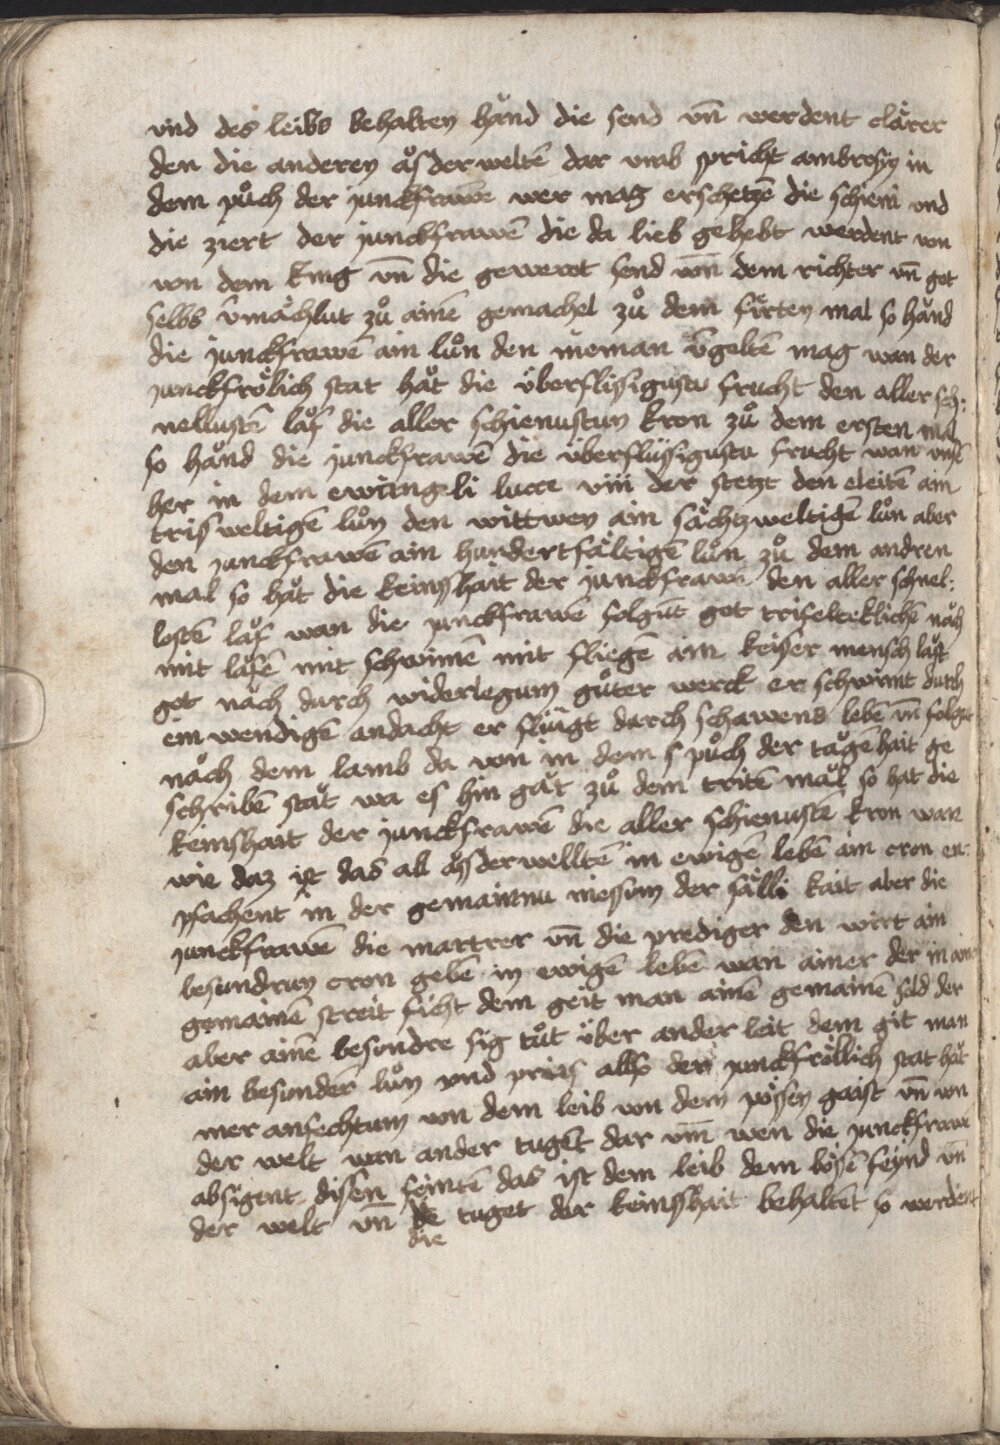 vnd des leibs behalten hănd die send vn̄ werdent clărer
den die anderen ăsderweltē dar vmb spricht ambrosiꝯ in
dem půch der junckfrawē wer mag erschetzē die schieni vnd
die ziert der junckfrawē die da lieb gehebt werdent von
von dem king vn̄ die gewerot send von̄ dem richter vn̄ got
selbs v̄mächlut zů ainē gemachel zů dem firten mal so hănd
die junckfrawē ain lůn den nieman v̄geltē mag wan der
junckfrölich stat hăt die überflissigustu frucht den aller sch:
nellustē lăf die aller schienustun kron zů dem ersten mal
so hănd die junckfrawē die überflüssigustu frucht wan vnsē
her in dem ewangeli luce viii der setzt den eleitē ain
trisweltigē lůn den wittwen ain sächtzweltigē lůn aber
den junckfrawē ain hundertfältigē lůn zů dem andren
mal so hăt die keinschait der junckfrawē den aller schnel:
lostē lăf wan die junckfrawē folgūt got trifelteklichē năch
mit lăfē mit schwimē mit fliegē ain keiser mensch lăft
got năch durch widerlegum gůter werck er schwimt durch
ein wendigē andacht er fluigt durch schawends lebē vn̄ folgūt
năch dem lamb da von in dem s půch der tăgenhait ge
schribē stăt wa es hin găt zů dem tritē măl so hat die
keinshait der junckfrawē die aller schienustē kron wan
wie daz ist das all ăsserwelltē in ewigē lebē ain cron en:
pfachent in der gemainnu niessum der sälli kait aber die
junckfrawē die martrer vn̄ die prediger den wirt ain
besundrun cron gebē in ewigē lebē wan ainer der in ainē
gemainē streit ficht dem geit man ainē gemainē sold der
aber ainē besundre sig tůt über ander leit dem git man
ain besunderē lůn vnd priis allso der junckfröllich stat hăt
mer anfechtum von dem leib von dem pössen gaist vn̄ von
der welt wan ander tugēt dar vm̄ wen die junckfrawē
absigent dissen feintē das ist dem leib dem bösē feind vn̄
der welt vn̄ die tuget der keinshait behaltēt so werdent